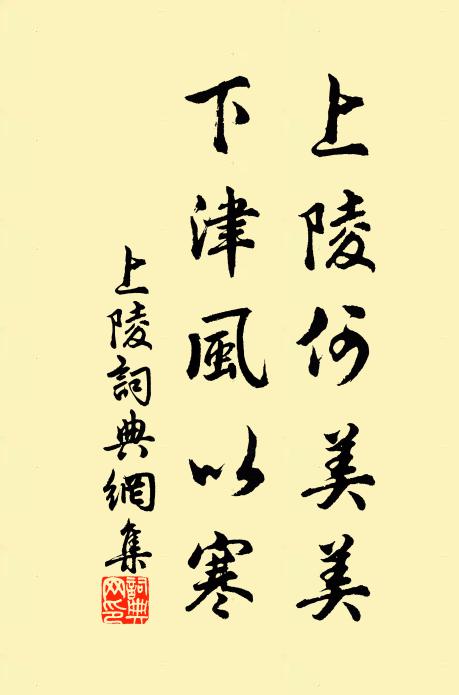 上陵何美美
下津風以寒
上陵詞典網集
詞典网印